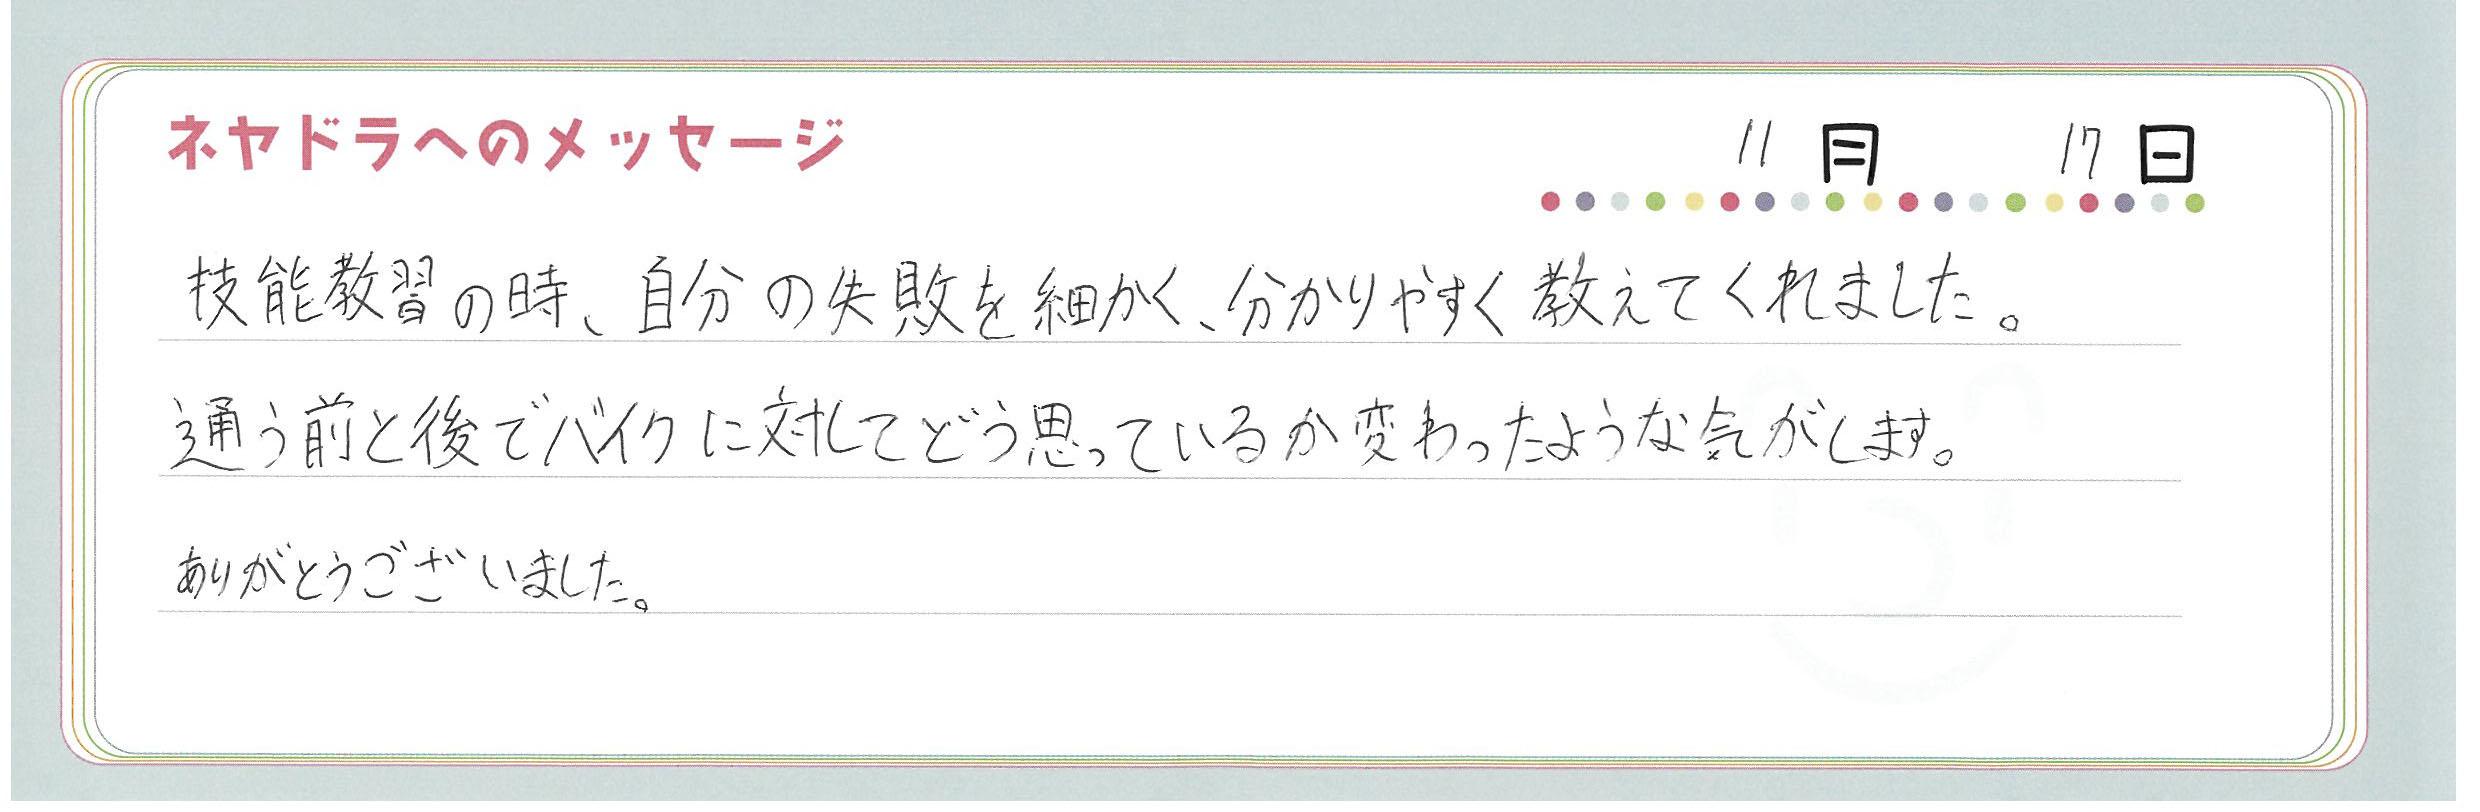 ネヤドラへのメッセージ
11月 17日
技能教習の時、自分の失敗を細かく、分かりやすく教えてくれました。
通う前と後でバイクに対してどう思っているか変わったような気がします。
ありがとうございました。